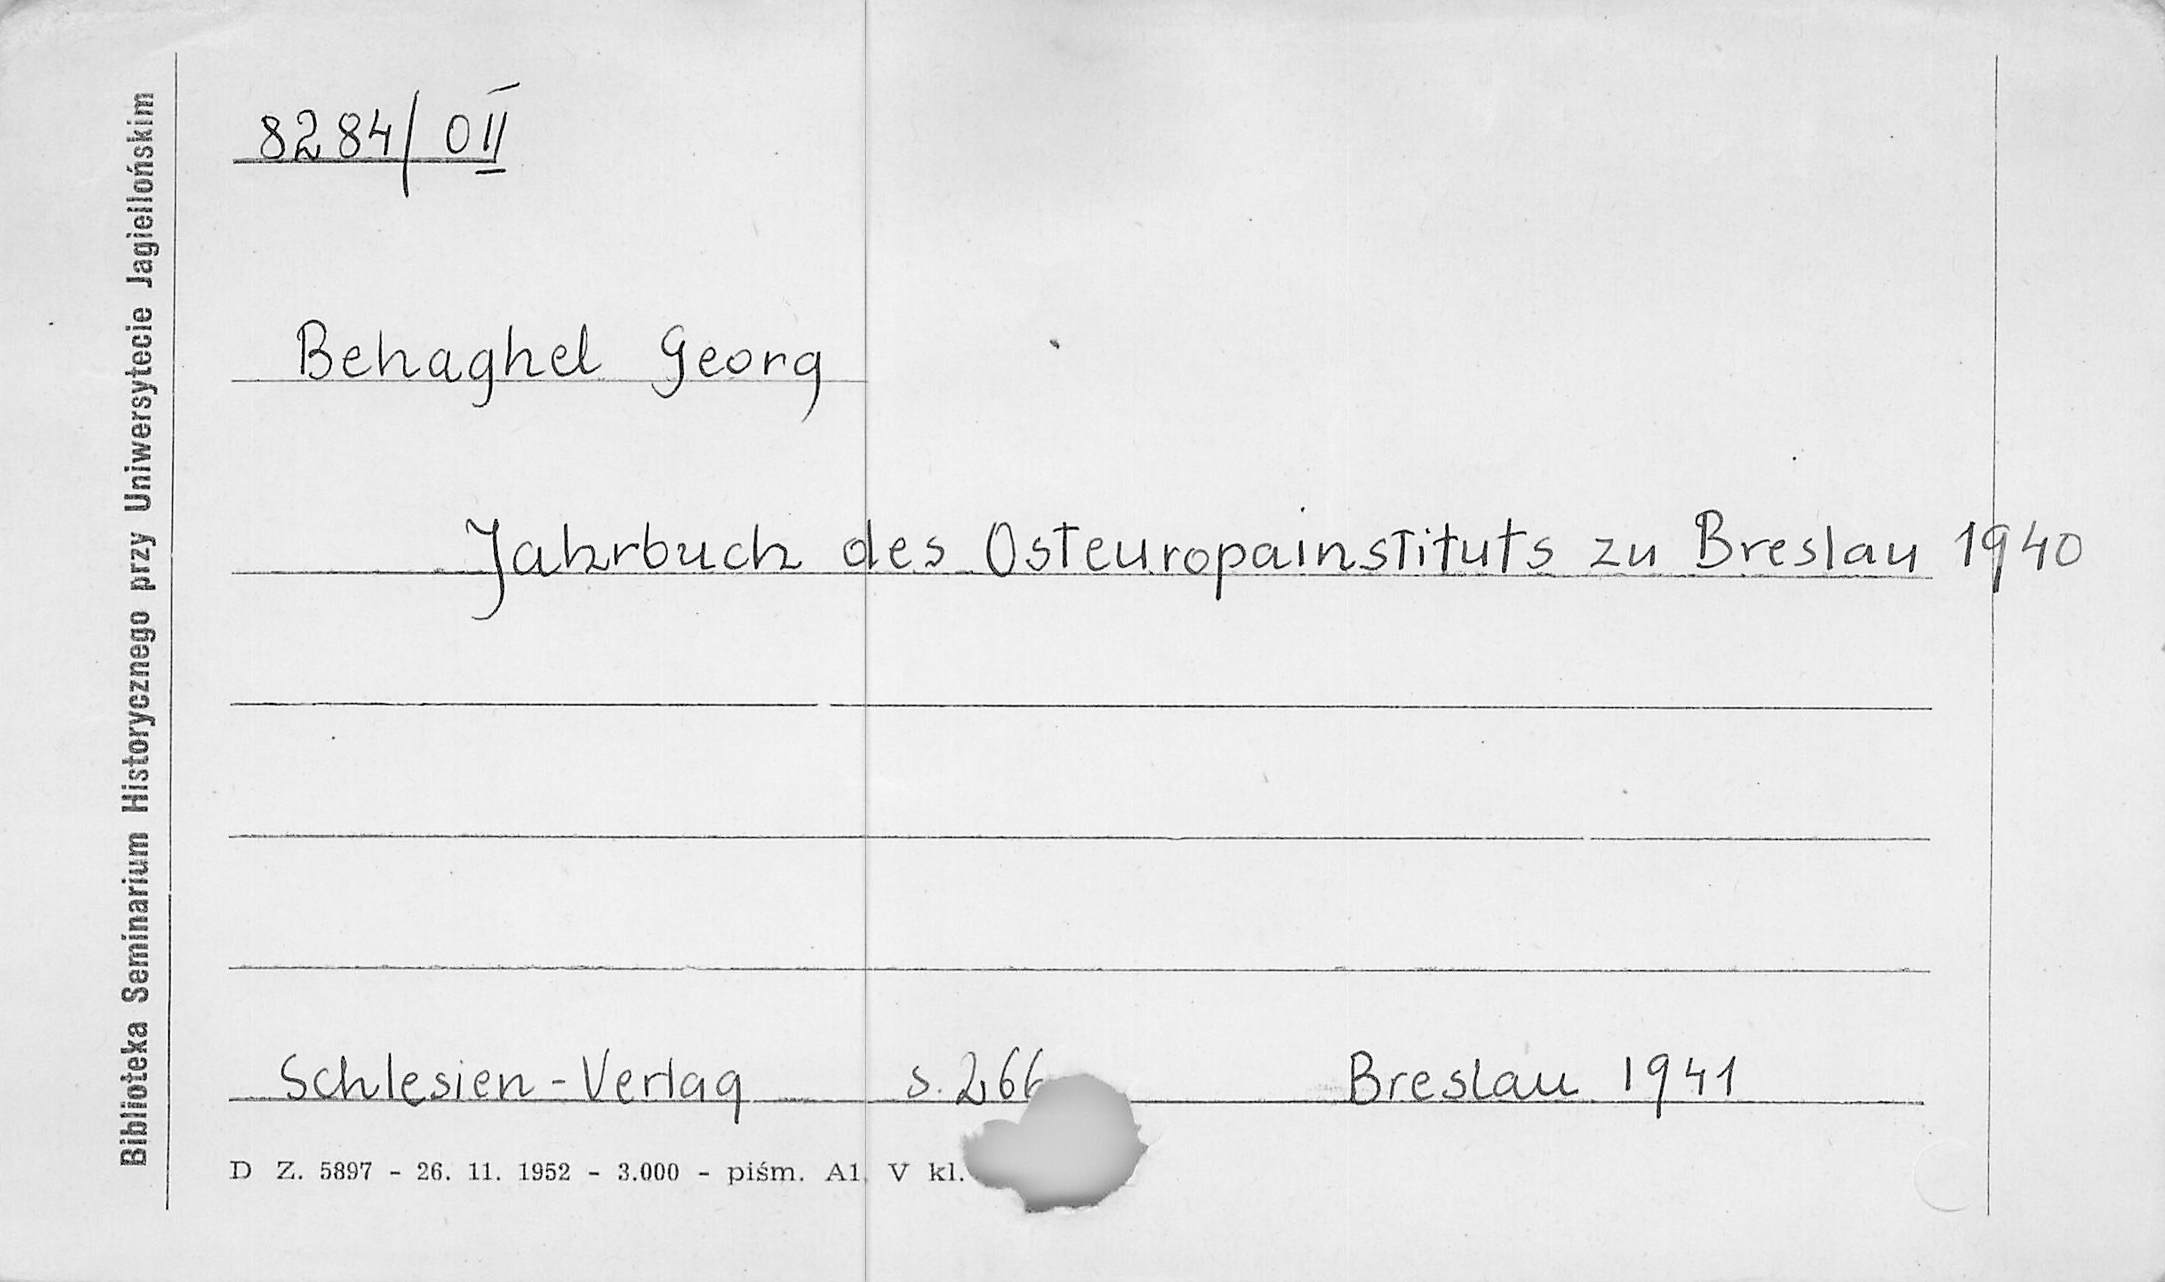 8284/ O II
Behaghel Georg
Jahrbuch des Osteuropainstituts zu Breslau 1940
Schlesien-Verlag s. 266 Breslau 1941
D Z. 5897 - 26. 11. 1952 - 3.000 - piśm. A1 V kl.
Biblioteka Seminarium Historycznego przy Uniwersytecie Jagiellońskim